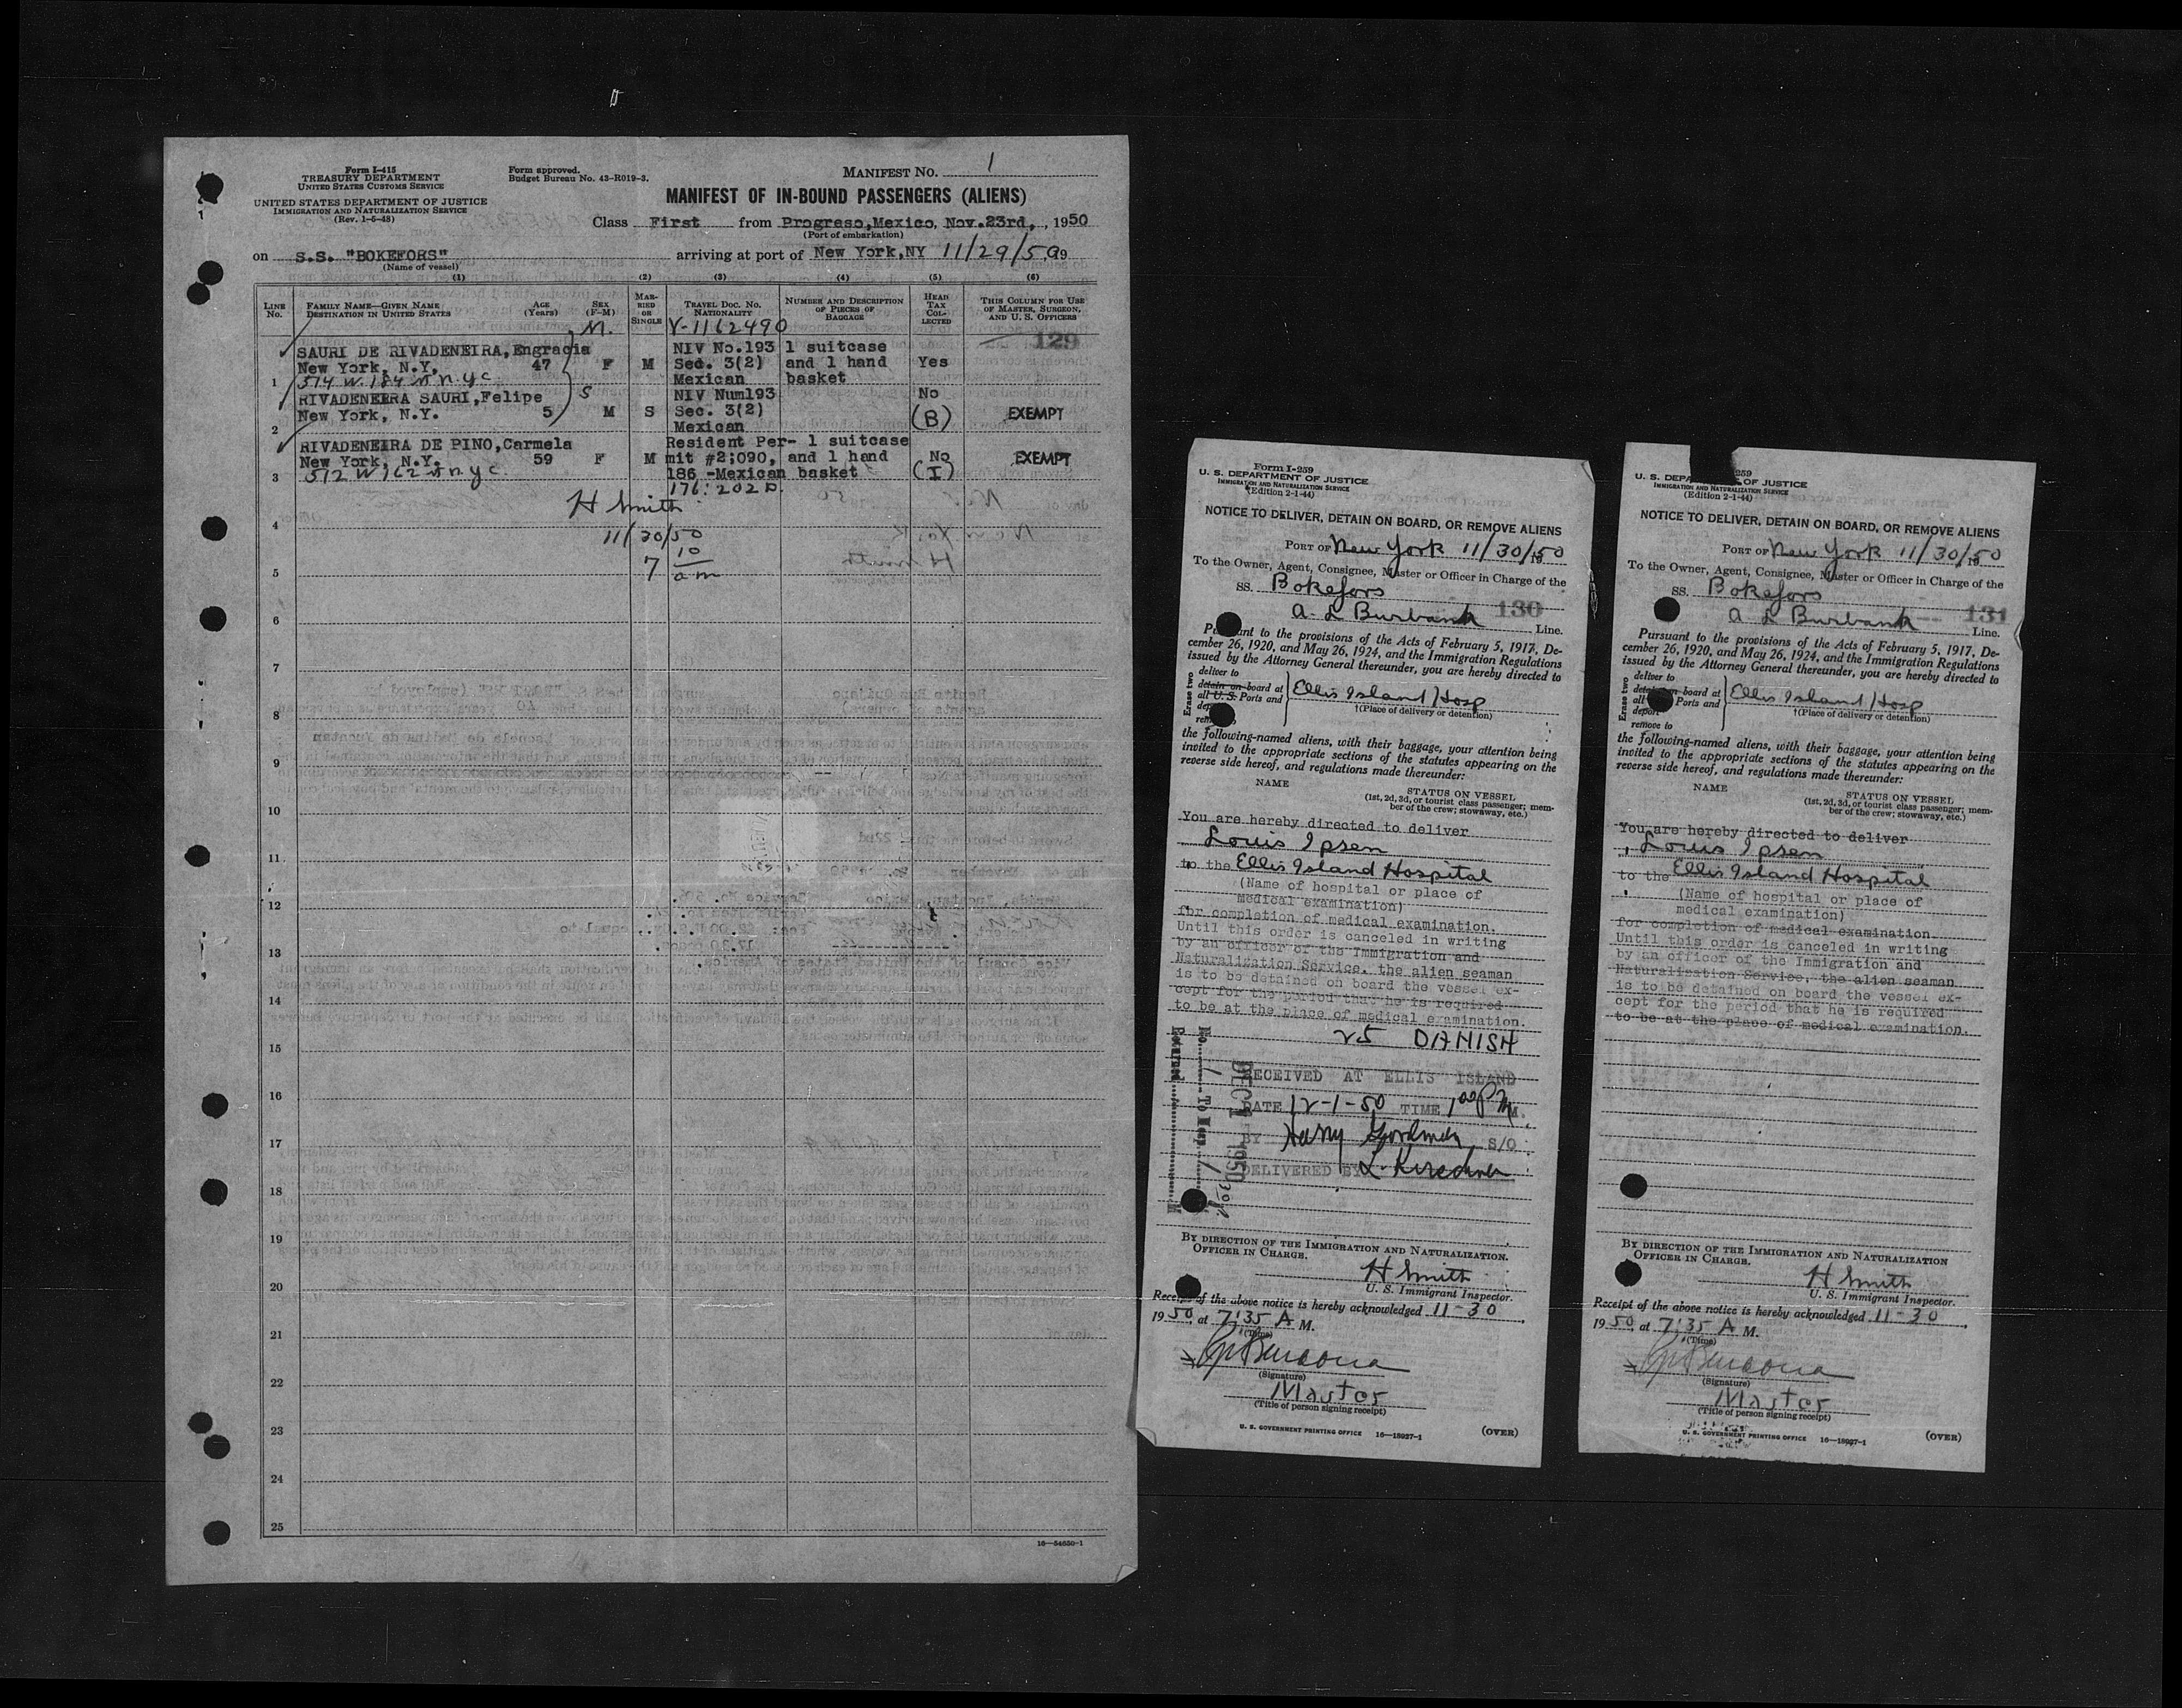 Form I-415
TREASURY DEPARTMENT
UNITED STATES CUSTOMS SERVICE
UNITED STATES DEPARTMENT OF JUSTICE
IMMIGRATION AND NATURALIZATION SERVICE
(Rev. 1-5-48)
Form approved.
Budget Bureau No. 43-R019-3.
MANIFEST NO. 1
MANIFEST OF IN-BOUND PASSENGERS (ALIENS)
Class First from Progreso, Mexico, Nov. 23rd, , 1950
(Port of embarkation)
on S.S. "BOKEFORS" arriving at port of New York, NY 11/29/50, 19
(Name of vessel)
(1) (2) (3) (4) (5) (6)
LINE No. FAMILY NAME—GIVEN NAME DESTINATION IN UNITED STATES AGE (Years) SEX (F-M) MARRIED OR SINGLE TRAVEL DOC. NO. NATIONALITY NUMBER AND DESCRIPTION OF PIECES OF BAGGAGE HEAD TAX COLLECTED THIS COLUMN FOR USE OF MASTER, SURGEON, AND U. S. OFFICERS
M. V-1162490
129
SAURI DE RIVADENEIRA, Engracia NIV No.193 1 suitcase
New York, N.Y. 47 F M Sec. 3(2) and 1 hand Yes
1 514 W. 184 St N.Y.C Mexican basket
RIVADENEIRA SAURI, Felipe S NIV Num193 No
New York, N.Y. 5 M S Sec. 3(2) (B) EXEMPT
2 Mexican
RIVADENEIRA DE PINO, Carmela Resident Per- 1 suitcase
New York, N.Y. 59 F M mit #2;090, and 1 hand No EXEMPT
3 512 W 162 St N.Y.C. 186 -Mexican basket (I)
176:202 D.
H Smith
4 11/30/50
7 10/am
5
6
7
8
9
10
11
12
13
14
15
16
17
18
19
20
21
22
23
24
25
16—54650-1
Form I-259
U. S. DEPARTMENT OF JUSTICE
IMMIGRATION AND NATURALIZATION SERVICE
(Edition 2-1-44)
NOTICE TO DELIVER, DETAIN ON BOARD, OR REMOVE ALIENS
PORT OF New York 11/30/1950
To the Owner, Agent, Consignee, Master or Officer in Charge of the
SS. Bokefors
A. L Burbank 130 Line.
Pursuant to the provisions of the Acts of February 5, 1917, De-
cember 26, 1920, and May 26, 1924, and the Immigration Regulations
issued by the Attorney General thereunder, you are hereby directed to
Erase two
deliver to
detain on board at
all U.S. Ports and
Ellis Island Hosp
†(Place of delivery or detention)
the following-named aliens, with their baggage, your attention being
invited to the appropriate sections of the statutes appearing on the
reverse side hereof, and regulations made thereunder:
NAME STATUS ON VESSEL
(1st, 2d, 3d, or tourist class passenger; mem-
ber of the crew; stowaway, etc.)
You are hereby directed to deliver
Louis Ipsen
to the Ellis Island Hospital
(Name of hospital or place of
medical examination)
for completion of medical examination.
Until this order is canceled in writing
by an officer of the Immigration and
Naturalization Service, the alien seaman
is to be detained on board the vessel ex-
cept for the period that he is required
to be at the place of medical examination.
25 DANISH
RECEIVED AT ELLIS ISLAND
DATE 12-1-50 TIME 1:00 P M.
BY Harry S/O
DELIVERED BY L. Kirschner
DEC 1 1950
BY DIRECTION OF THE IMMIGRATION AND NATURALIZATION
OFFICER IN CHARGE.
H Smith
U. S. Immigrant Inspector.
Receipt of the above notice is hereby acknowledged 11-30
1950, at 7:35 A M.
(Time)
(Signature)
Master
(Title of person signing receipt)
U. S. GOVERNMENT PRINTING OFFICE 16—18927-1 (OVER)
259
U. S. DEPA OF JUSTICE
IMMIGRATION AND NATURALIZATION SERVICE
(Edition 2-1-44)
NOTICE TO DELIVER, DETAIN ON BOARD, OR REMOVE ALIENS
PORT OF New York 11/30/1950
To the Owner, Agent, Consignee, Master or Officer in Charge of the
SS. Bokefors
A L Burbank 131 Line.
Pursuant to the provisions of the Acts of February 5, 1917, De-
cember 26, 1920, and May 26, 1924, and the Immigration Regulations
issued by the Attorney General thereunder, you are hereby directed to
Erase two
deliver to
board at
all Ports and
deport
remove to
Ellis Island Hosp
†(Place of delivery or detention)
the following-named aliens, with their baggage, your attention being
invited to the appropriate sections of the statutes appearing on the
reverse side hereof, and regulations made thereunder:
NAME STATUS ON VESSEL
(1st, 2d, 3d, or tourist class passenger; mem-
ber of the crew; stowaway, etc.)
You are hereby directed to deliver
Louis Ipsen
to the Ellis Island Hospital
(Name of hospital or place of
medical examination)
for completion of medical examination.
Until this order is canceled in writing
by an officer of the Immigration and
Naturalization Service, the alien seaman
is to be detained on board the vessel ex-
cept for the period that he is required
to be at the place of medical examination.
BY DIRECTION OF THE IMMIGRATION AND NATURALIZATION
OFFICER IN CHARGE.
H Smith
U. S. Immigrant Inspector.
Receipt of the above notice is hereby acknowledged 11-30
1950, at 7:35 A M.
(Time)
(Signature)
Master
(Title of person signing receipt)
U. S. GOVERNMENT PRINTING OFFICE 16—18927-1 (OVER)